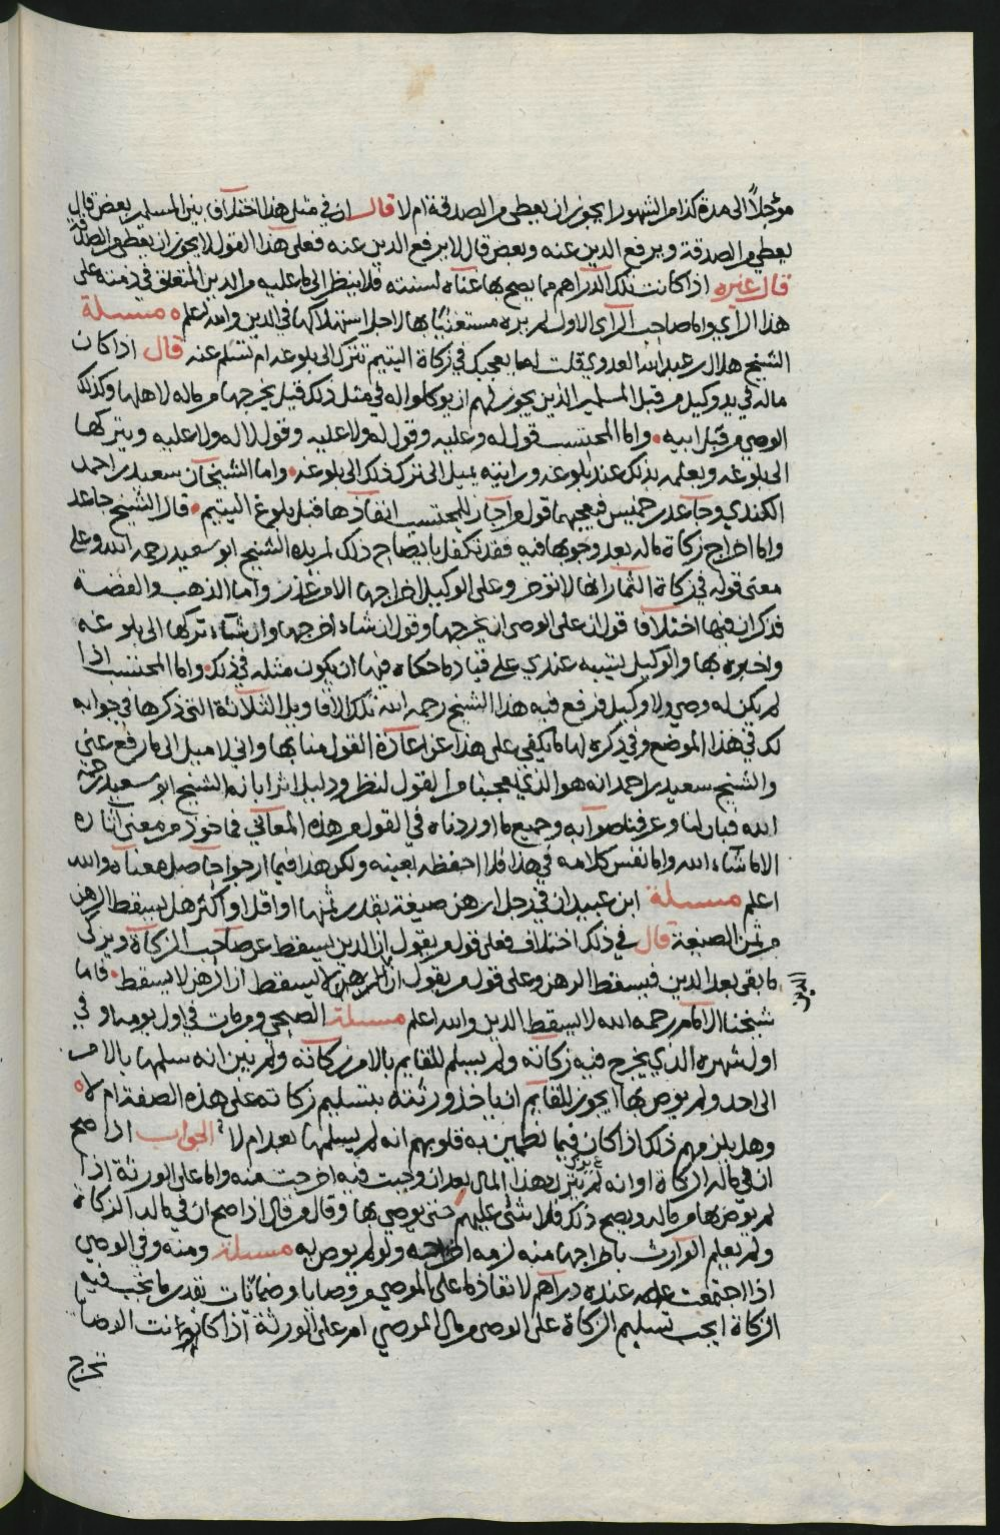 مؤجلاً الى مدة كذا من الشهور ايجوز ان يعطى من الصدقة ام لا قال ان في مثل هذا اختلاف بين المسلمين بعض قال
يعطى من الصدقة ويرفع الدين عنه وبعض قال لا يرفع الدين عنه فعلى هذا القول لا يجوز ان يعطى من الصدقة
قال غيره اذا كانت تلك الدراهم مما يصح بها غناه لسنته فلا ينظر الى ما عليه من الدين المتعلق في ذمته على
هذا الراي واما صاحب الراي الاول لم يره مستغنيا بها لاجل استهلاكها في الدين والله اعلم ه مسئلة
الشيخ هلال بن عبدالله العدوي قلت ايما يعجبك في زكاة اليتيم تترك الى بلوغه ام تسلم عنه قال اذا كان
ماله في يد وكيل من قبل المسلمين الذين يجوز لهم ان يوكلوا له في مثل ذلك قيل يخرجها من ماله لاهلها وكذلك
الوصي من قبل ابيه واما المحتسب قول له وعليه وقول له ولا عليه وقول لا له ولا عليه ويتركها
الى بلوغه ويعلمه بذلك عند بلوغه ورايته يميل الى ترك ذلك الى بلوغه واما الشيخان سعيد بن احمد
الكندي وجاعد بن خميس فيعجبهما قول من اجاز للمحتسب انفاذها قبل بلوغ اليتيم قال الشيخ جاعد
واما اخراج زكاة ماله بعد وجوبها فيه فقد تكفل بايضاح ذلك لمريده الشيخ ابو سعيد رحمه الله وعلى
معنى قوله في زكاة الثمار انها لا تؤخر وعلى الوكيل اخراجها الا من عذر واما الذهب والفضة
فذكر ان فيها اختلافا قول ان على الوصي ان يخرجها وقول ان شاء اخرجها وان شاء تركها الى بلوغه
واخبره بها والوكيل يشبه عندي على قياد ما حكاه فيها ان يكون مثله في ذلك واما المحتسب اذا
لم يكن له وصي ولا وكيل فرفع فيه هذا الشيخ رحمه الله تلك الاقاويل الثلاثة التي ذكرها في جوابه
لك في هذا الموضع وفي ذكره لها ما يكفي على هذا عن اعادة القول منا بها واني لاميل الى ما رفع عني
والشيخ سعيد بن احمد انه هو الذي يعجبنا من القول لنظر ودليل اثر ابانه الشيخ ابو سعيد رحمه
الله فبان لنا وعرفنا صوابه وجميع ما اوردناه في القول من هذه المعاني فماخوذ من معنى آثاره
الا ما شاء الله واما نفس كلامه في هذا فلا احفظه بعينه ولكن هذا فيما ارجو حاصل معناه والله
اعلم مسئلة ابن عبيدان في رجل ارهن صيغة بقدر ثمنها او اقل او اكثر هل يسقط الرهن
من ثمن الصيغة قال في ذلك اختلاف فعلى قول من يقول ان الدين يسقط عن صاحب الزكاة ويزكى
ما بقي بعد الدين فيسقط الرهن وعلى قول من يقول ان الدين لا يسقط ان الرهن لا يسقط فاما
شيخنا الامام رحمه الله لا يسقط الدين والله اعلم مسئلة الصبحي ومن مات في اول يومه او في
اول شهره الذي يخرج فيه زكاته ولم يسلم للقايم بالامر زكاته ولم تبين انه سلمها بالامر
الى احد ولم يوص بها ايجوز للقايم ان ياخذ ورثته بتسليم زكاته على هذه الصفة ام لا ه
وهل يلزمهم ذلك اذا كان فيما تطمين به قلوبهم انه لم يسلمها بعد ام لا الجواب اذا صح
ان في ماله الزكاة او انه لم يزك هذا المال بعد ان وجبت فيه اخرجت منه واما على الورثة اذا
لم يوص بها من ماله ويصح ذلك فلا شئ عليهم حتى يوصي بها وقال من قال اذا صح ان في مال الزكاة
ولم يعلم الوارث باخراجها منه لزمه اخراجه ولو لم يوص به مسئلة ومنه وفي الوصي
اذا اجتمعت عنده دراهم لانفاذ ما على الموصي من وصايا وضمانات بقدر ما تجب فيه
الزكاة ايجب تسليم الزكاة على الوصي من مال الموصي ام على الورثة اذا كانت الوصايا
تخرج